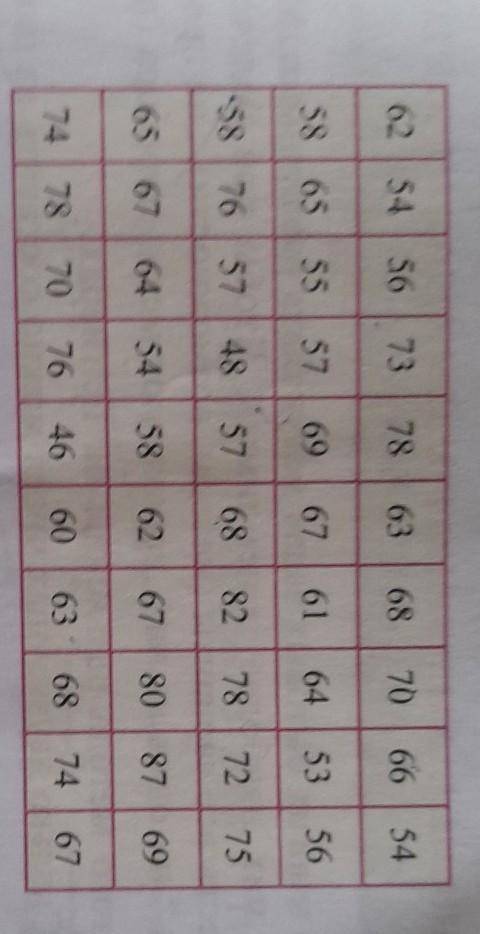 62 54 56 73 78 63 68 70 66 54
58 65 55 57 69 67 61 64 53 56
58 76 57 48 57 68 82 78 72 75
65 67 64 54 58 62 67 80 87 69
74 78 70 76 46 60 63 68 74 67